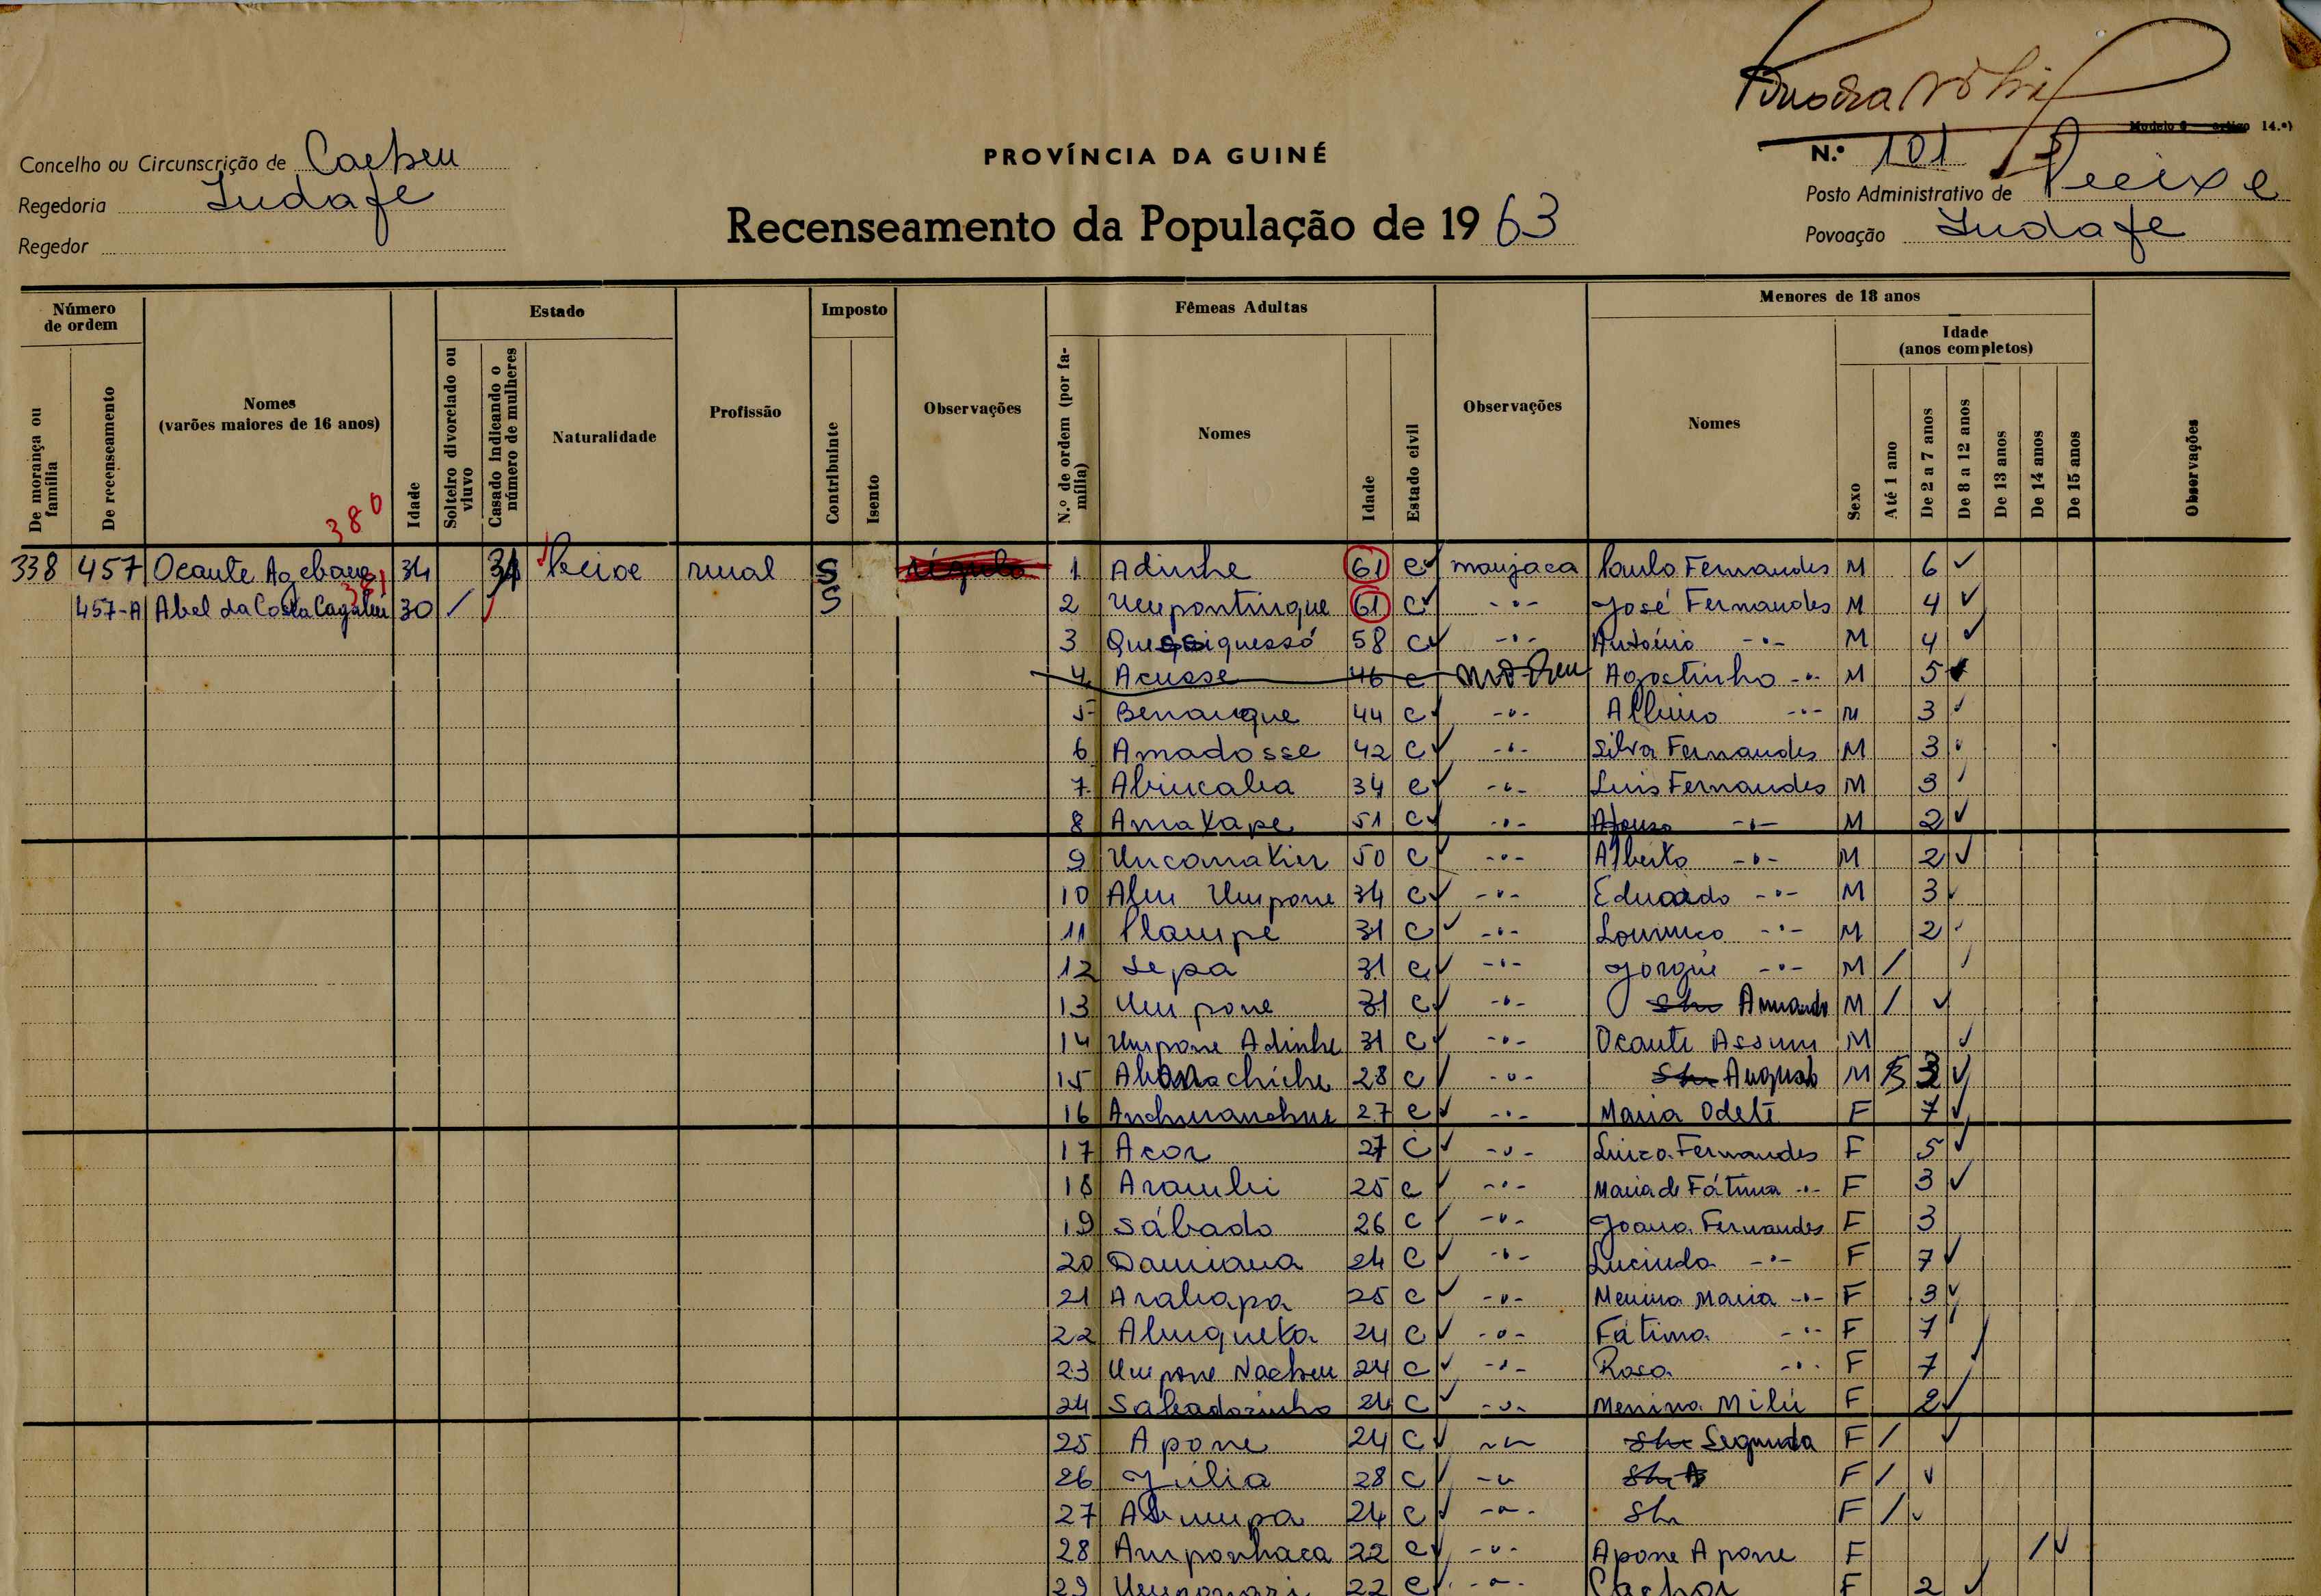 N.º 101
Modelo 9 artigo 14.º)
Concelho ou Circunscrição de Cacheu
PROVÍNCIA DA GUINÉ
Regedoria Indafe
Posto Administrativo de Pecixe
Regedor
Recenseamento da População de 1963
Povoação Indafe
Número de ordem
Estado
Imposto
Fêmeas Adultas
Menores de 18 anos
Idade (anos completos)
De morança ou família
De recenseamento
Nomes (varões maiores de 16 anos)
Idade
Solteiro divorciado ou viuvo
Casado indicando o número de mulheres
Naturalidade
Profissão
Contribuinte
Isento
Observações
N.º de ordem (por família)
Nomes
Idade
Estado civil
Observações
Nomes
Sexo
Até 1 ano
De 2 a 7 anos
De 8 a 12 anos
De 13 anos
De 14 anos
De 15 anos
Observações
380
338 457 Ocante 34 rural S régulo 1 Adinhe 61 c manjaca Paulo Fernandes M 6
381
457-A Abel da Costa 30 S 2 Umpontinque 61 c -"- José Fernandes M 4
3 58 c -"- António -"- M 4
4 Acusse 46 c Agostinho -"- M 5
5 Benanque 44 c -"- Albino -"- M 3
6 Amadosse 42 c -"- Silva Fernandes M 3
7 Abincaba 34 c -"- Luis Fernandes M 3
8 Amatape 51 c -"- Afonso -"- M 2
9 Uncomatier 50 c -"- Alberto -"- M 2
10 Umpone 34 c -"- Eduardo -"- M 3
11 Plampe 31 c -"- Lourenço -"- M 2
12 Sepa 31 c -"- Jorge -"- M /
13 Umpone 31 c -"- Armando M /
14 Umpone Adinhe 31 c -"- Ocante Assum M
15 28 c -"- Augusto M 3
16 27 c -"- Maria Odete F 7
17 Acor 27 c -"- Fernandes F 5
18 Arambi 25 c -"- Maria de Fátima -"- F 3
19 Sábado 26 c -"- Joana Fernandes F 3
20 Damiana 24 c -"- Lucinda -"- F 7
21 Arabapa 25 c -"- Menina Maria -"- F 3
22 Alunqueta 24 c -"- Fátima -"- F 7
23 Umpone Nacheu 24 c -"- Rosa -"- F 7
24 Sabadozinha 24 c -"- Menina Milú F 2
25 Apone 24 c -"- Segunda F /
26 Júlia 28 c -"- F /
27 24 c -"- F /
28 Amponhaca 22 c -"- Apone Apone F /
29 22 c -"- F 2